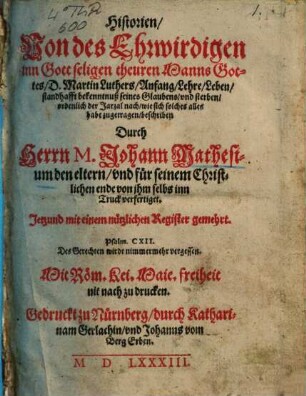 4 Th. L. Z
600
Historien/
Von des Ehrwirdigen
inn Gott seligen theuren Manns Got-
tes/ D. Martin Luthers/ Anfang/ Lehre/ Leben/
standhafft bekenntnuß seines Glaubens/ vnd sterben/
ordenlich der Jarzal nach/ wie sich solches alles
habe zugetragen/ beschriben
Durch
Herrn M. Johann Mathesi-
um den eltern/ vnd für seinem Christ-
lichen ende von jhm selbs inn
Truck verfertiget.
Jetzund mit einem nützlichen Register gemehrt.
Psalm. CXII.
Des Gerechten wirdt nimmermehr vergessen.
Mit Röm. Kei. Maie. freiheit
nit nach zu drucken.
Gedruckt zu Nürnberg/ durch Kathari-
nam Gerlachin/ vnd Johanns vom
Berg Erben.
M D LXXXIII.